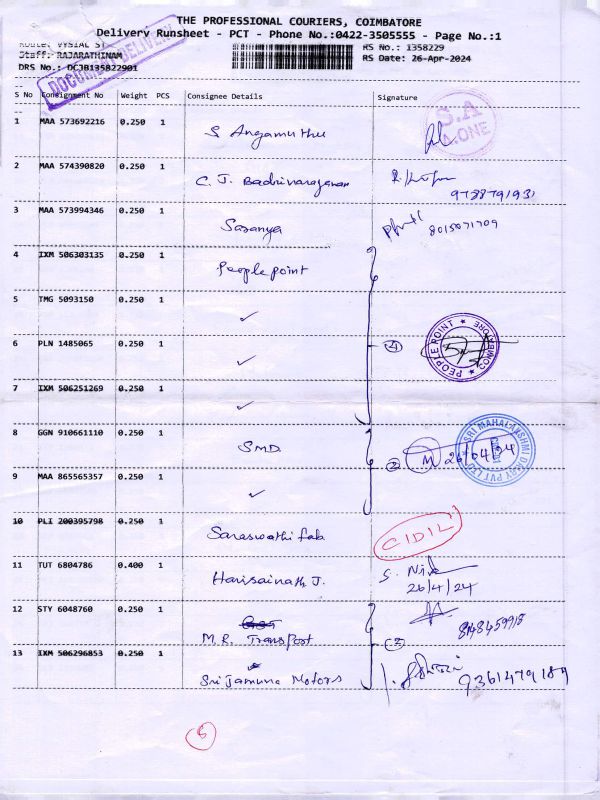 THE PROFESSIONAL COURIERS, COIMBATORE
Delivery Runsheet - PCT - Phone No.:0422-3505555 - Page No.:1
Route: VYSIAL ST
Staff: RAJARATHINAM
DRS No.: DCJB135822901
RS No.: 1358229
RS Date: 26-Apr-2024
DOCUMENT DELIVERY
S No Consignment No Weight PCS Consignee Details Signature
1 MAA 573692216 0.250 1 S Angamuthu
S.A
ZONE
2 MAA 574390820 0.250 1 C. J. Badrinarayanan
3 MAA 573994346 0.250 1 Saranya 8015071709
4 IXM 506303135 0.250 1 People point
5 TMG 5093150 0.250 1 ✓
6 PLN 1485065 0.250 1 ✓ 4
PEOPLE POINT ★ COIMBATORE ★
7 IXM 506251269 0.250 1 ✓
8 GGN 910661110 0.250 1 SMD 2 M 26/04/24
SRI MAHALAKSHMI DAIRY PVT LTD
9 MAA 865565357 0.250 1 ✓
10 PLI 200395798 0.250 1 Saraswathi fab CIDIL
11 TUT 6804786 0.400 1 Harisainath J. S. Nis
26/4/24
12 STY 6048760 0.250 1 M. R. Transport 3 8148459915
13 IXM 506296853 0.250 1 Sri Jamuna Motors 9361479189